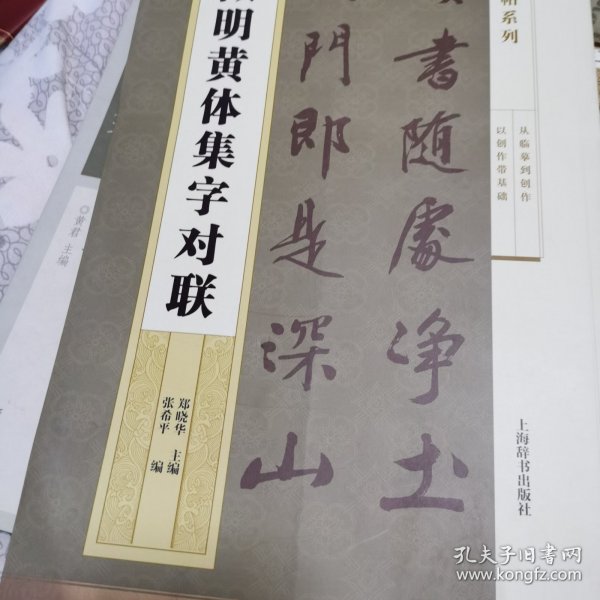 明黄体集字对联
郑晓华 主编
张希平 编
書随處净土
門即是深山
帖系列
从临摹到创作
以创作带基础
上海辞书出版社
◎黄君 主编
孔夫子旧书网
www.kongfz.com